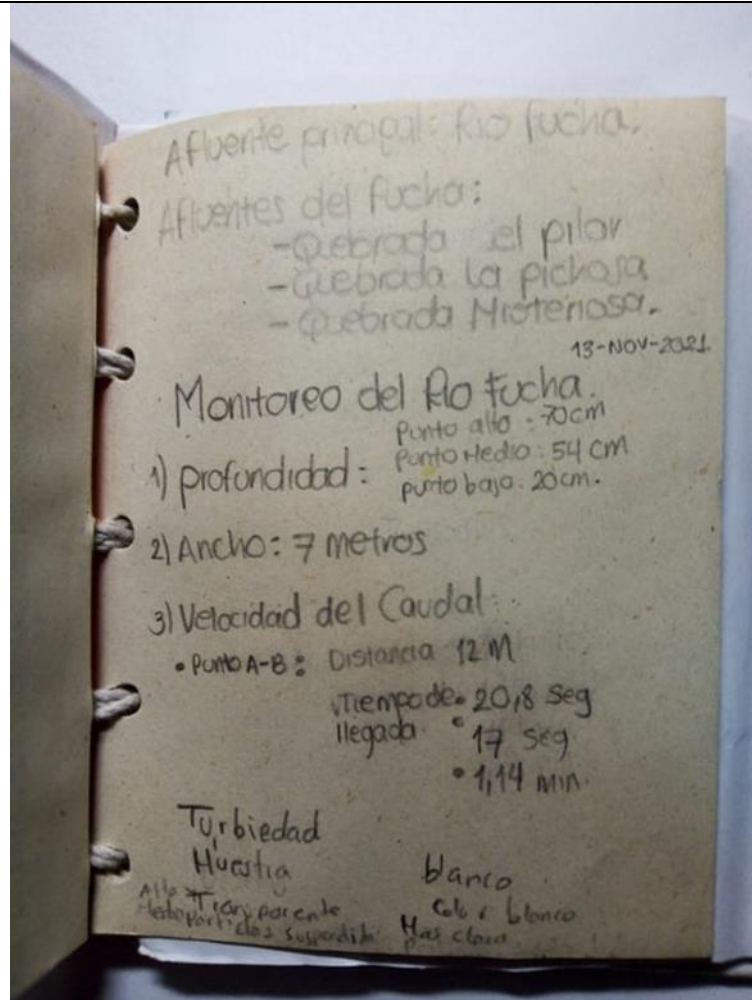 Afluente principal: Rio fucha.
Afluentes del fucha:
-Quebrada el pilar
-Quebrada La pichosa
-Quebrada Misteriosa.
13-NOV-2021.
Monitoreo del Rio Fucha.
1) profundidad:
Punto alto : 70cm
Punto Medio : 54 cm
punto bajo : 20cm.
2) Ancho: 7 metros
3) Velocidad del Caudal:
• Punto A-B: Distancia 12 M
Tiempo de • 20,8 seg
llegada • 17 seg.
• 1,14 min.
Turbiedad
Muestra blanco
Alto Transparente Color blanco
Medio suspendida Mas claro